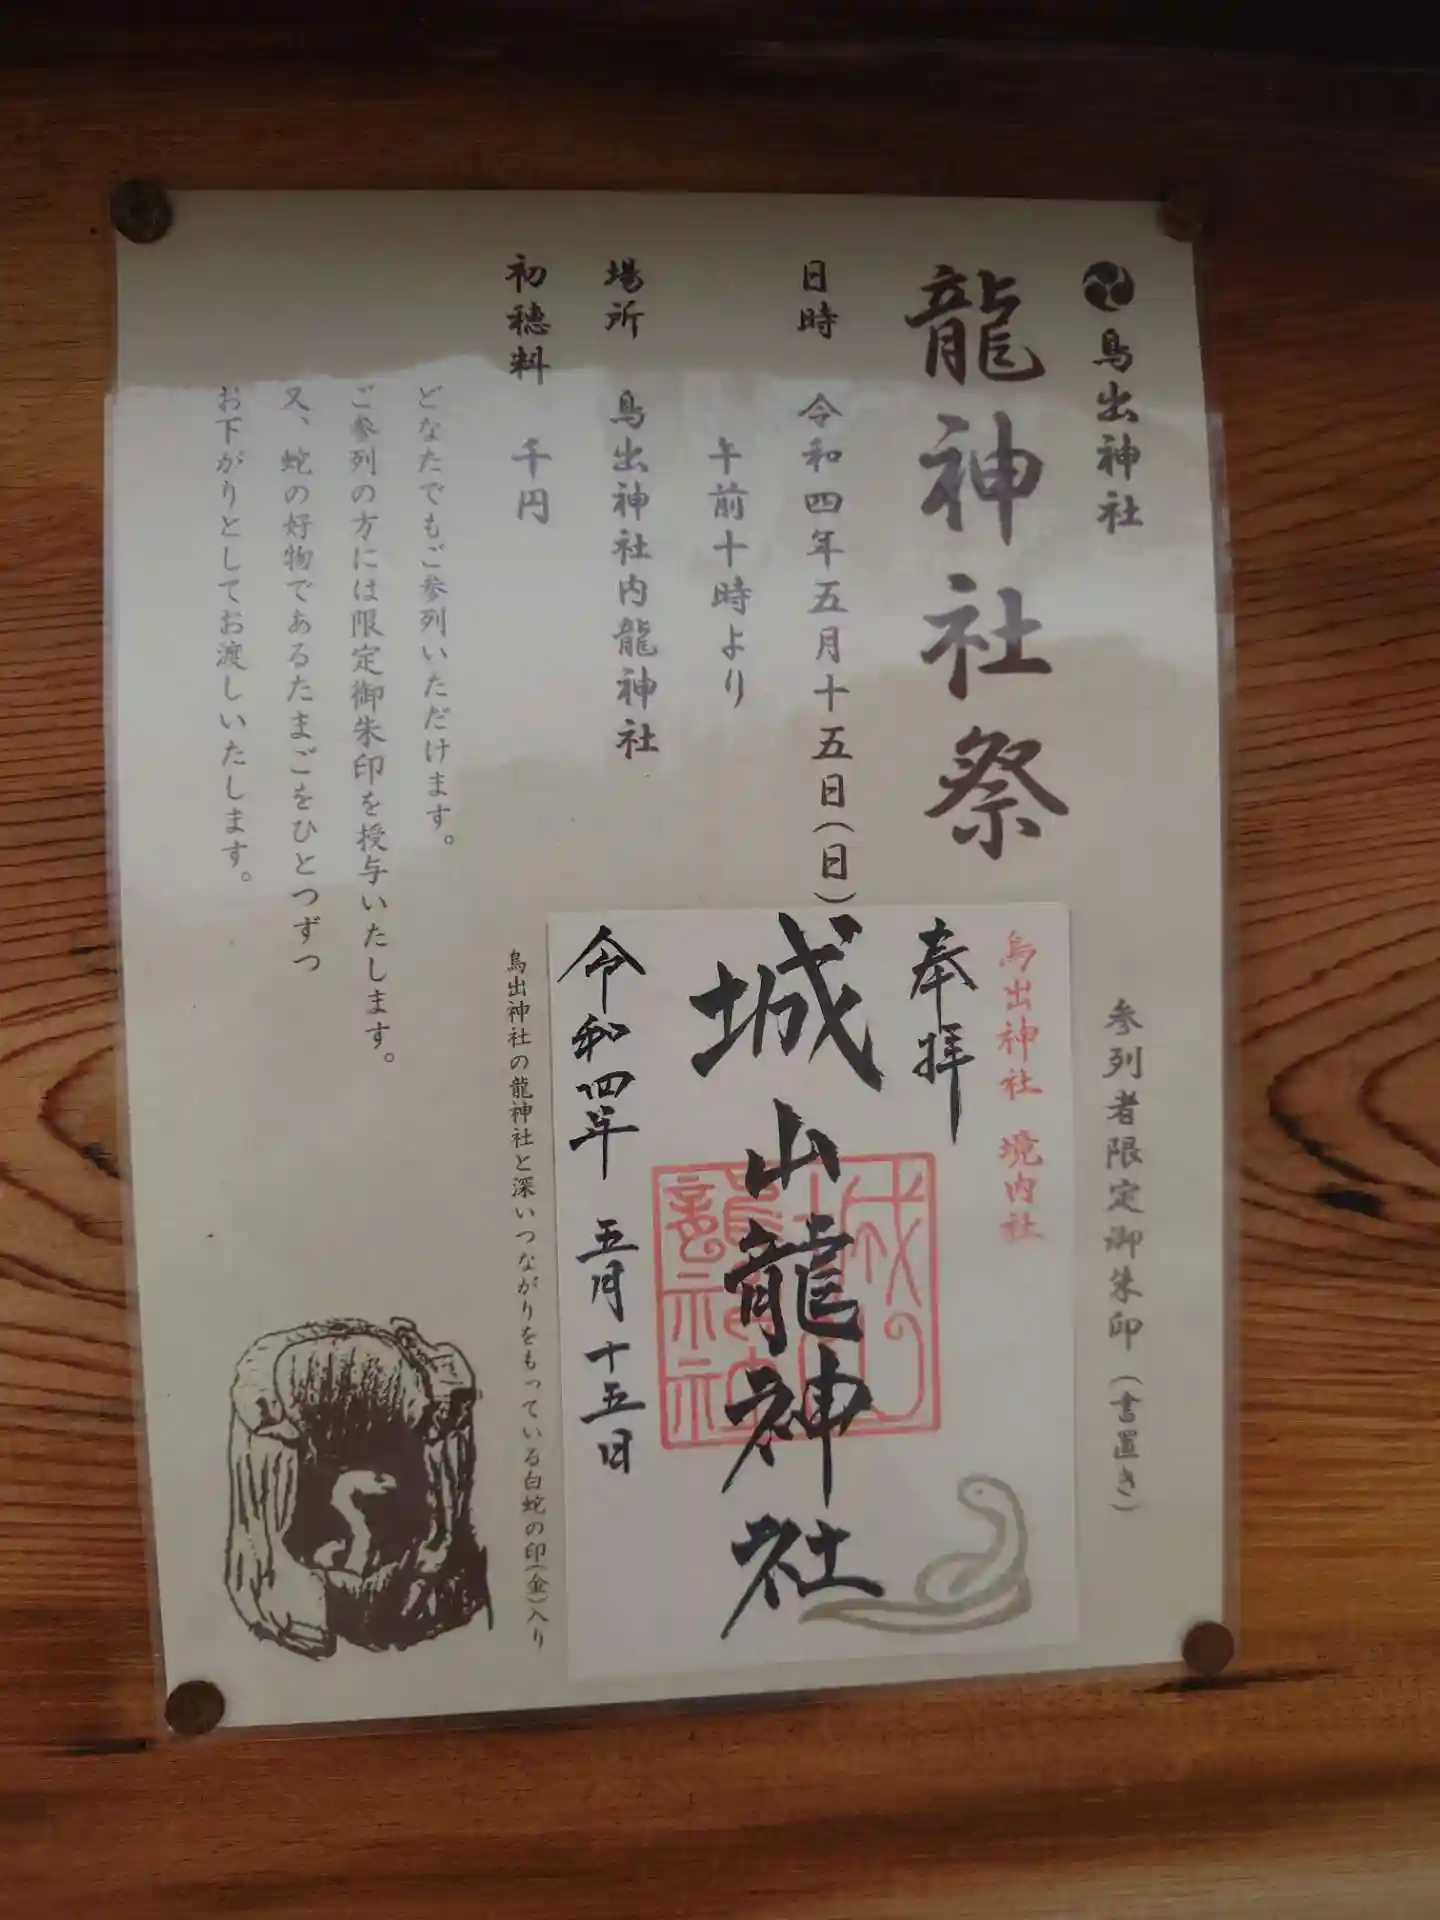 鳥出神社
龍神社祭
日時 令和四年五月十五日(日)
午前十時より
場所 鳥出神社内龍神社
初穂料 千円
どなたでもご参列いただけます。
ご参列の方には限定御朱印を授与いたします。
又、蛇の好物であるたまごをひとつずつ
お下がりとしてお渡しいたします。
参列者限定御朱印(書置き)
鳥出神社 境内社
奉拝
城山龍神社
城山龍神社
令和四年 五月十五日
鳥出神社の龍神社と深いつながりをもっている白蛇の印(金)入り